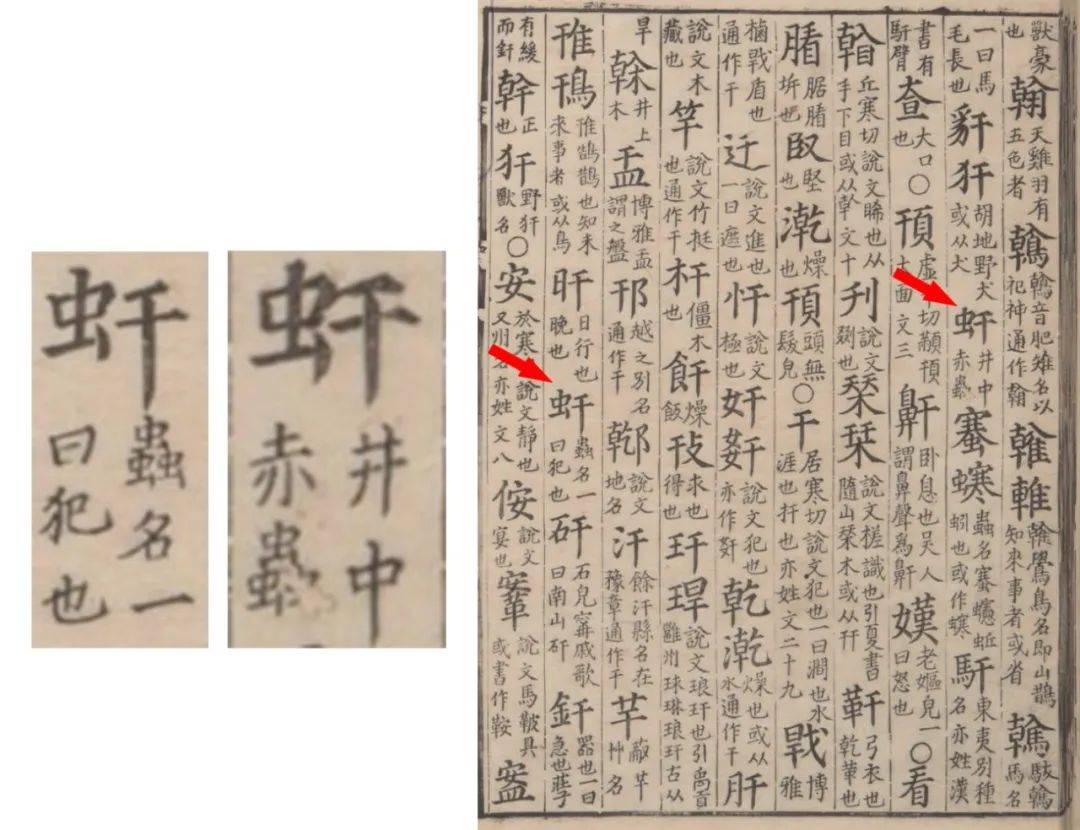 虷
蟲名一
曰犯也
虷
井中
赤蟲
獸豪也 翰 天雞羽有五色者 鶾 鶾音肥雉名以祀神通作翰 雗 雗鷽鳥名即山鵲知來事者或省 駭 馬名
一曰馬毛長也 豻犴 胡地野犬或从犬 虷 井中赤蟲 蟲名 蚯蚓也或作 馯 東夷別種名亦姓漢
書有馯臂 大口也 ○ 頇 虛 切顢頇大面文三 鼾 卧息也吴人謂鼻聲爲鼾 嫨 老嫗皃一曰怒也 ○ 看
丘寒切說文睎也从手下目或从倝文十 刊 說文剟也 栞 說文槎識也引夏書隨山栞木或从幵 靬 弓衣也乾革也
坼也 臤 堅也 漧 燥也 頇 頭無髮皃 ○ 干 居寒切說文犯也一曰澗也水涯也扞也亦姓文二十九 博雅
盾也通作干 說文進也一曰遮也 忓 說文極也 奸姧 說文犯也亦作 乾漧 燥也或从水通作干 肝
說文木藏也 竿 說文竹挺也通作干 杆 僵木也 飦 燥飯 求也得也 玕 說文琅玕也引禹貢雝州球琳琅玕古从
旱 榦 井上木 博雅 謂之盤 邗 越之別名通作干 說文地名 汗 餘汗縣名在豫章通作干 艸名
鳱 鵠鵲也知未來事者或从鳥 旰 日行也晚也 虷 蟲名一曰犯也 矸 石皃甯戚歌曰南山矸 釬 器也一曰急也莊子
有緩而釬 幹 正也 犴 野犴獸名 ○ 安 於寒切說文靜也又州名亦姓文八 侒 說文宴也 說文馬鞁具或書作鞍